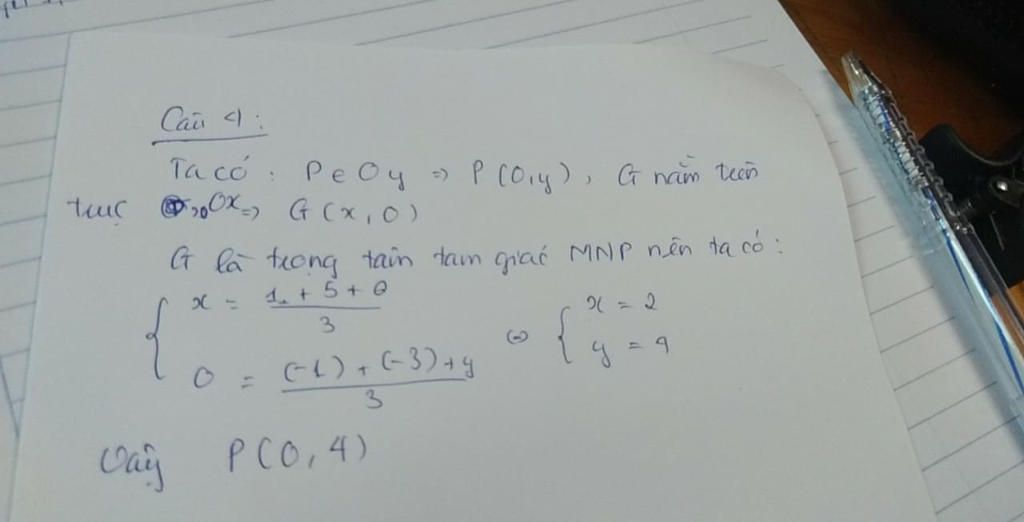 Câu 4:
Ta có: P∈Oy => P(0,y), G nằm trên
trục Ox => G(x,0)
G là trọng tâm tam giác MNP nên ta có:
{ x = (1 + 5 + 0)/3 <=> { x = 2
0 = ((-1) + (-3) + y)/3 y = 4
Vậy P(0,4)